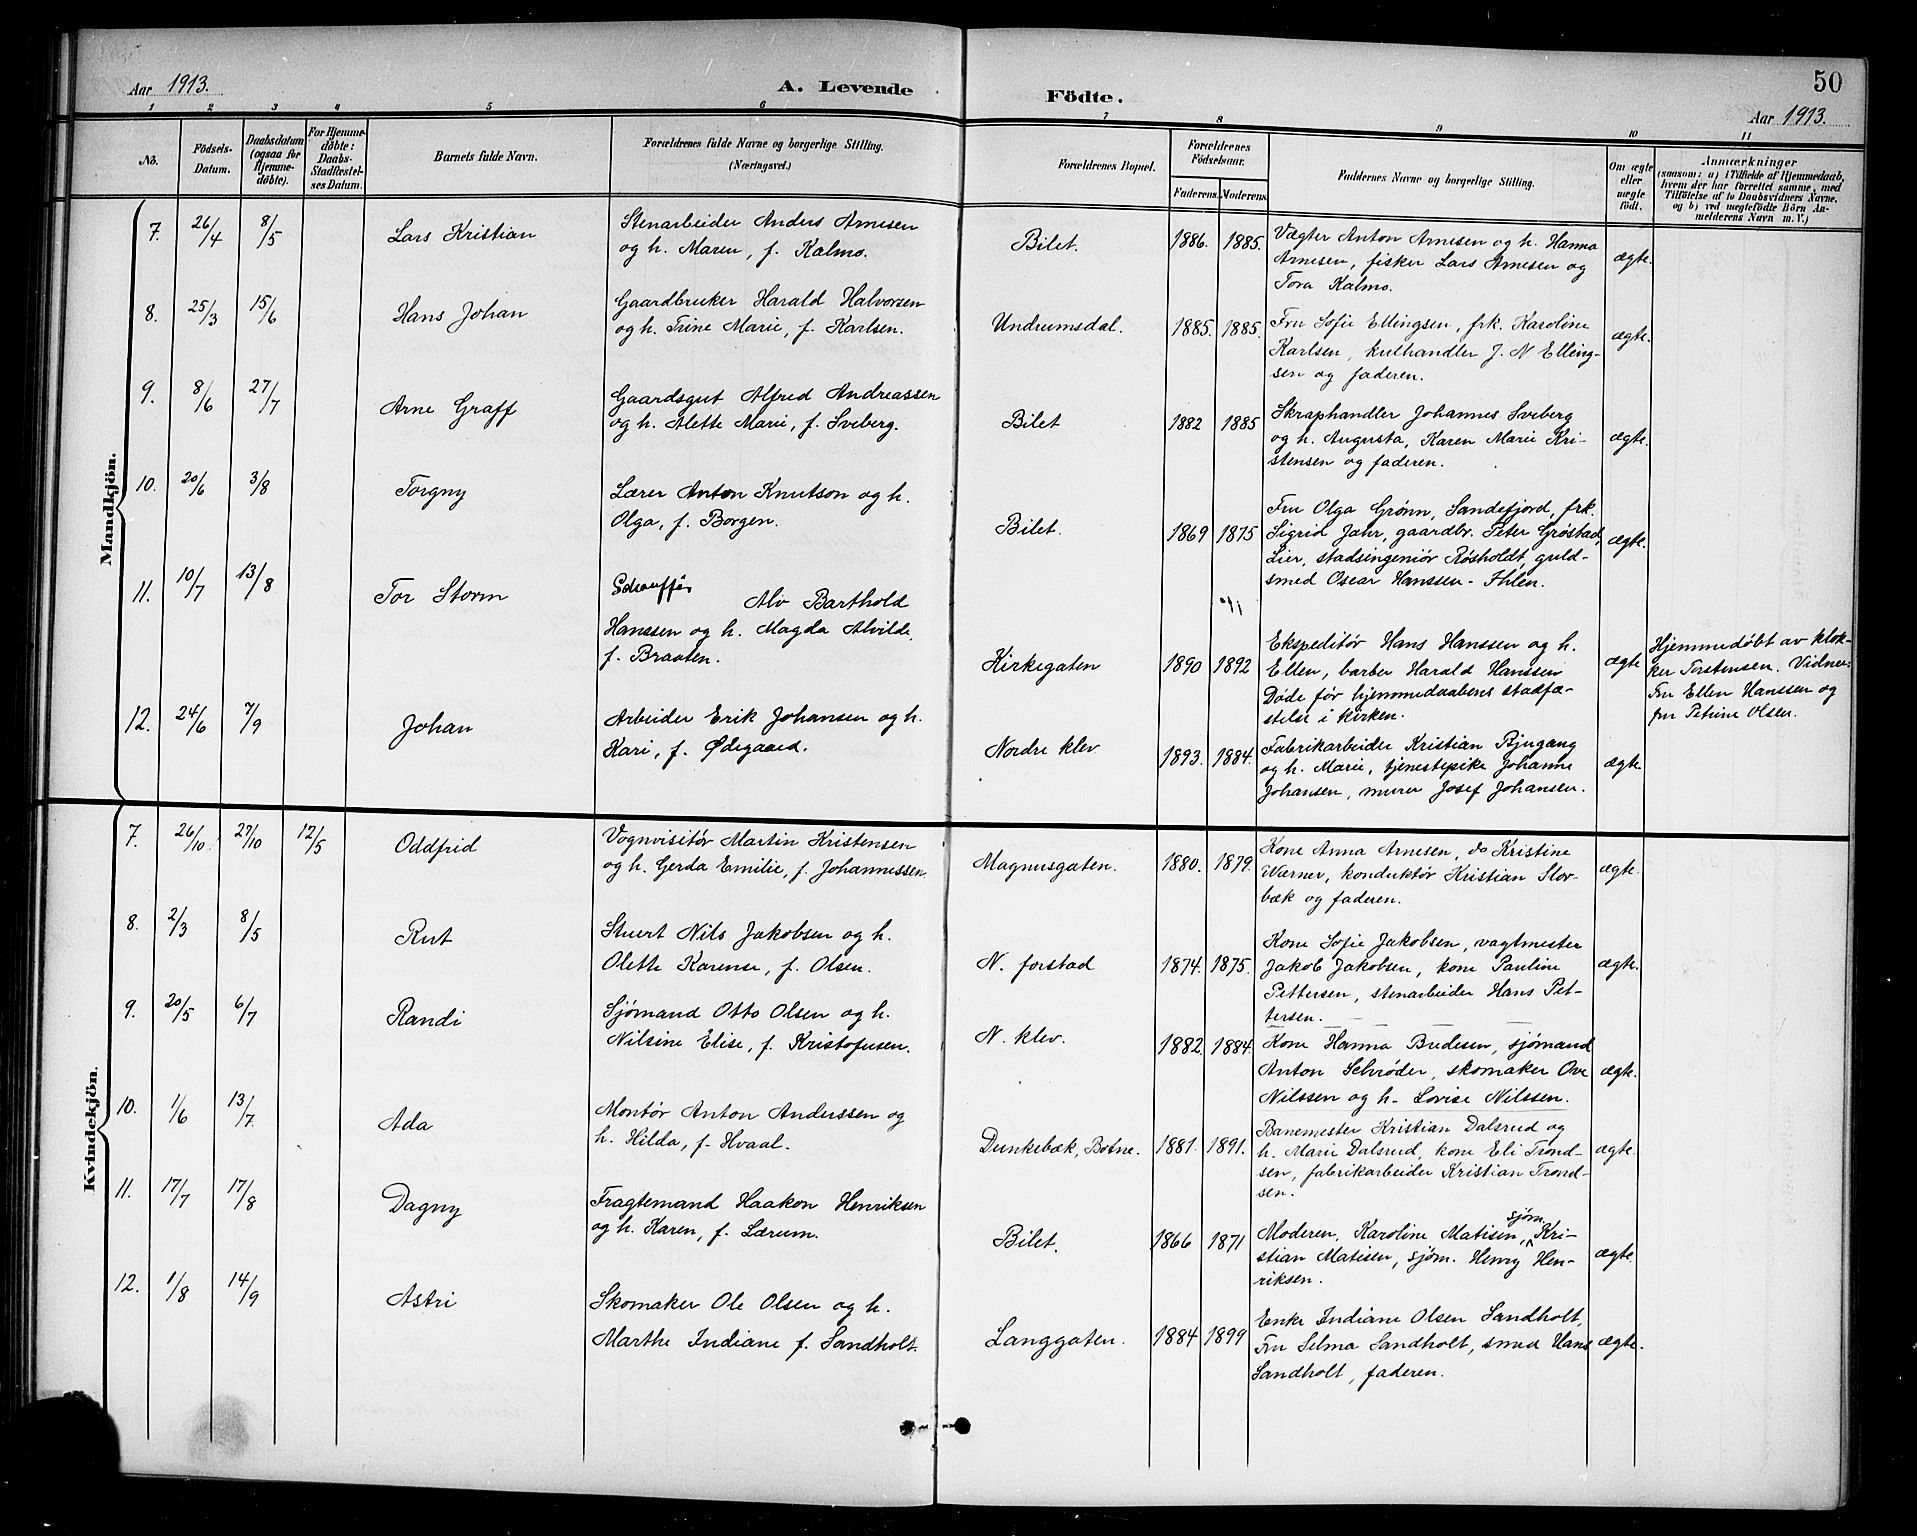 50
Aar 1913. A. Levende Födte. Aar 1913.
1 2 3 4 5 6 7 8 9 10 11
No.
Födsels-
Datum.
Daabsdatum
(ogsaa for
Hjemme-
döbte).
For Hjemme-
döbte:
Daabs-
Stadfæstel-
ses Datum.
Barnets fulde Navn.
Forældrenes fulde Navne og borgerlige Stilling.
(Næringsvei.)
Forældrenes Bopæl.
Forældrenes
Födselsaar.
Faderens. Moderens.
Faddernes Navne og borgerlige Stilling.
Om ægte
eller
uægte
födt.
Anmærkninger
(saasom: a) i Tilfælde af Hjemmedaab,
hvem der har forrettet samme, med
Tilföielse af to Daabsvidners Navne,
og b) ved uægtefödte Börn An-
melderens Navn m. V.)
Mandkjön.
7. 26/4 8/5 Lars Kristian
Stenarbeider Anders Arnesen
og h. Maren, f. Kalmo.
Bilet. 1886. 1885.
Vægter Anton Arnesen og h. Hanna
Arnesen, fisker Lars Arnesen og
Tora Kalmo.
ægte.
8. 25/3 15/6 Hans Johan
Gaardbruker Harald Halvorsen
og h. Trine Marie, f. Karlsen.
Undrumsdal. 1885. 1885.
Fru Sofie Ellingsen, frk. Karoline
Karlsen, kulhandler J. N. Elling-
sen og faderen.
ægte.
9. 8/6 27/7 Arne Graff
Gaardsgut Alfred Andreassen
og h. Alette Marie, f. Sveberg.
Bilet 1882 1885
Skraphandler Johannes Sveberg
og h. Augusta, Karen Marie Kri-
stensen og faderen.
ægte.
10. 20/6 3/8 Torgny
Lærer Anton Knutson og h.
Olga, f. Borgen.
Bilet. 1869 1875
Fru Olga Grønn, Sandefjord, frk.
Sigrid Jahr, gaardbr. Peter Grøstad,
Lier, stadsingeniør Røsholdt, guld-
smed Oscar Hanssen-Ihlen.
ægte.
11. 10/7 13/8 Tor Storm
Alv Barthold
Hanssen og h. Magda Alvilde,
f. Braaten.
Kirkegaten 1890 1892
Ekspeditør Hans Hanssen og h.
Ellen, barber Harald Hanssen
Døde før hjemmedaabens stadfæ-
stelse i kirken.
ægte
Hjemmedøbt av klok-
ker Torstensen. Vidner:
Fru Ellen Hanssen og
fru Petrine Olsen.
12. 24/6 7/9 Johan
Arbeider Erik Johansen og h.
Kari, f. Ødegaard.
Nordre klev 1893. 1884.
Fabrikarbeider Kristian Bjugang
og h. Marie, tjenestepike Johanne
Johansen, murer Josef Johansen.
ægte.
Kvindekjön.
7. 26/10 27/10 12/5 Oddfrid
Vognvisitør Martin Kristensen
og h. Gerda Emilie, f. Johannessen.
Magnusgaten. 1880. 1879.
Kone Anna Arnesen, do Kristine
Wærner, konduktør Kristian Stor-
bæk og faderen.
ægte.
8. 2/3 8/5 Rut
Stuert Nils Jakobsen og h.
Olette Karense, f. Olsen.
N. forstad 1874. 1875.
Kone Sofie Jakobsen, vagtmester
Jakob Jakobsen, kone Pauline
Pettersen, stenarbeider Hans Pet-
tersen.
ægte.
9. 20/5 6/7 Randi
Sjømand Otto Olsen og h.
Nilsine Elise, f. Kristofersen.
N. klev. 1882. 1884.
Kone Hanna Bredesen, sjømand
Anton Schrøder, skomaker Ove
Nilssen og h. Lovise Nilssen.
ægte.
10. 1/6 13/7 Ada
Montør Anton Anderssen og
h. Hilda, f. Hvaal.
Dunkebæk, Botne. 1881. 1891.
Banemester Kristian Dalsrud og
h. Marie Dalsrud, kone Eli Trond-
sen, fabrikarbeider Kristian Trond-
sen.
ægte.
11. 17/7 17/8 Dagny
Fragtemand Haakon Henriksen
og h. Karen, f. Lærum.
Bilet. 1866 1871
Moderen, Karoline Matisen, sjøm. Kri-
stian Matisen, sjøm. Henry Hen-
riksen.
ægte.
12. 1/8 14/9 Astri
Skomaker Ole Olsen og h.
Marthe Indiane f. Sandholt.
Langgaten. 1884 1899
Enke Indiane Olsen Sandholt,
Fru Selma Sandholt, smed Hans
Sandholt, faderen.
ægte.